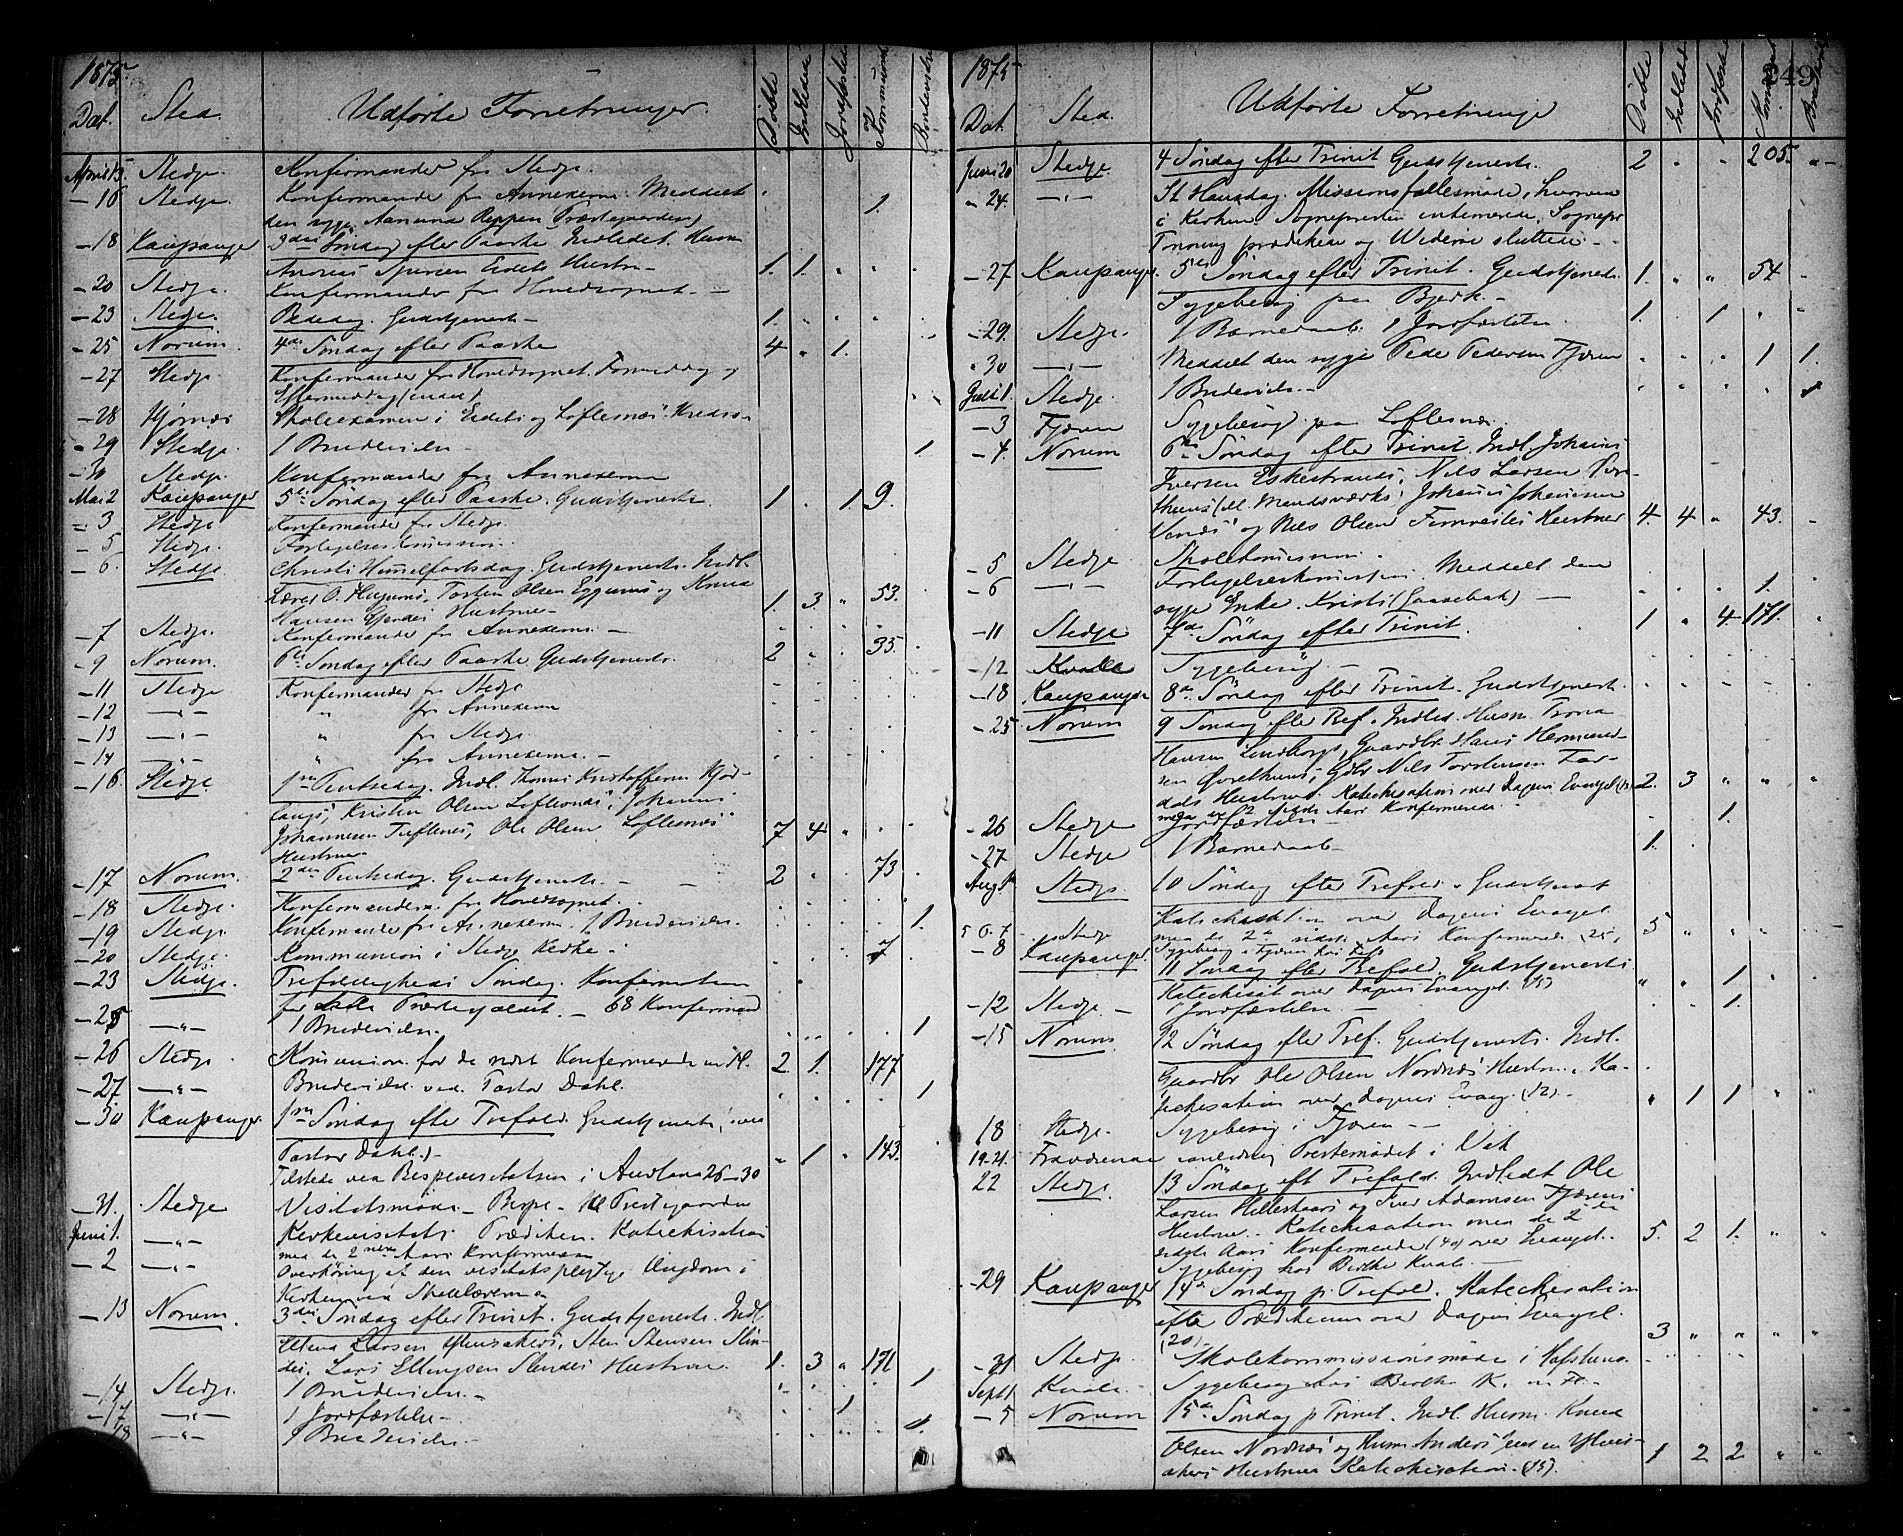 1875.
Dat. Sted. Udførte Forretninger. Døbte Indledte Jordfæstede Kommunic. Brudevielse
April 15. Stedje. Konfirmander fra Stedje.
- 16 Stedje. Konfirmander fra Annexerne. Meddelt 1.
den syge Præstegaarden)
- 18 Kaupanger 3die Søndag efter Paaske Indledet. Husm.
Eidets Hustru - 1. 1.
- 20 Stedje. Konfirmander fra Hovedsognet. -
- 23 Stedje. Bededag. Gudstjeneste - 1.
- 25 Norum. 4de Søndag efter Paaske 4 1.
- 27 Stedje. Konfirmander fra Hovedsognet. Formiddag og
Eftermiddag (endt).
- 28 Skoleexamen i Eidets og Loftesnæs Kreds -
- 29 Stedje. 1 Brudevielse - 1
- 30 Stedje. Konfirmander fra Annexerne
Mai 2 Kaupanger 5te Søndag efter Paaske. Gudstjeneste. 1 1 9.
- 3 Stedje Konfirmander fra Stedje.
- 5 Stedje. Forligelseskomission.
- 6. Stedje Christi Himmelfartsdag. Gudstjeneste. Indl.
Lærer O. Torsten Olsen og Knud
Hansen Hustruer - 1. 3 53.
- 7 Stedje. Konfirmander fra Annexerne. -
- 9 Norum. 6te Søndag efter Paaske Gudstjeneste. 2 35.
- 11 Stedje Konfirmander fra Stedje
- 12 -"- " fra Annexerne
- 13 -"- " fra Stedje
- 14 -"- " fra Annexerne. -
- 16 Stedje 1ste Pintsedag. Indl. Thomas Kristoffersen
Kristen Olsen Loftesnæs, Johannes
Johannesen Ole Olsen Loftesnæs' 7 4
Hustruer
- 17 Norum. 2den Pintsedag. Gudstjeneste - - 2 73
- 18 Stedje. Konfirmanderne fra Hovedsognet.
- 19 Stedje. Konfirmander fra Annexerne. 1 Brudevielse. 1
- 20 Stedje. Kommunion i Stedje Kirke - 7
- 23 Stedje. Trefoldigheds Søndag. Konfirmation
for Præstegjeldet. - 68 Konfirmand
- 25 -"- 1 Brudevielse. 1
- 26 Stedje Komunion for de sidst Konfirmerede indl. 2. 1. 177
- 27 -"- Brudevielse ved Pastor Dahl. 1
- 30 Kaupanger. 1ste Søndag efter Trefold. Gudstjeneste, (ved
Pastor Dahl.) - 1 143.
Tilstede ved Bispevisitatsen i Aurland 26-30
- 31. Stedje Visitatsmøde - Præstegaarden
Juni 1. -"- Kirkevisitats. Prædiken. Katechisation
med de 2 Aars Konfirmerede
- 2 -"- Overhøring af den visitatspligtige Ungdom i
Kirken ved Skolelærerne
- 13 Norum. 3die Søndag efter Trinit. Gudstjeneste. Indl.
Larsen Sten Stensen
Lars Ellingsen Slindes Hustruer. 1. 3 171
- 14 Stedje. 1 Brudevielse. - 1
- 17 -"- 1 Jordfæstelse - 1
18 -"- 1 Brudevielse. - 1.
1875 249
Dat. Sted. Udførte Forretninge Døbte Indledte
Juni 20 Stedje. 4 Søndag efter Trinit Gudstjeneste. 2 205.
" 24. -"- St Hansdag. Missionsfællesmøde, hvorved
i Kirken Sognepresten intimerede, Sognepr
prædikede og sluttede -
- 27 Kaupanger. 5te Søndag efter Trinit. Gudstjenest. 1. 54
Sygebesøg paa Bjerk. -
- 29. Stedje. 1 Barnedaab. 1 Jordfæstelse. 1. 1
" 30 -"- Meddelt den syge Peder Pedersen Fjæren 1 1.
Juli 1. Stedje. 1 Brudevielse - 1
- 3 Fjæren Sygebesøg paa Loftesnæs.
- 4. Norum 6te Søndag efter Trinit. Indl. Johannes
Iversen Eskestrands, Nils Larsen
Johannes Johannesen
og Nils Olsen Hustruer 4. 4 43.
- 5 Stedje Skolekomission.
- 6 -"- Forligelseskomission. Meddelt den
syge Enke Kristi (Gaasebak) - 1.
- 11 Stedje 7de Søndag efter Trinit. 1 4 171.
- 12 Kvale Sygebesøg -
- 18 Kaupanger 8de Søndag efter Trinit. Gudstjenest.
- 25 Norum 9 Søndag efter Tref. Indled. Husm. Trond
Hansen Lindborgs, Gaardbr. Hans Hermund-
sen Gdbr. Nils Torstensen Far-
dals Hustruer. Katechisation over Dagens Evangel (12) 2. 3
med de 2 sidste Aars Konfirmerede.
- 26 Stedje Jordfæstelse - 1.
- 27 Stedje 1 Barnedaab - 1.
Aug. 1 Stedje. 10 Søndag efter Trefold. Gudstjenest
Katechisation over Dagens Evangel
med de 2de sidste Aars Konfirmerede (25) 5
5 6. 7. Stedje Sygebesøg i Fjæren
- 8 Kaupanger. 11 Søndag efter Trefold. Gudstjeneste.
Katechisat. over Dagens Evangel. (15) 1
- 12 Stedje - 1 Jordfæstelse - 1.
- 15 Norum. 12 Søndag efter Tref. Gudstjeneste. Indl.
Gaardbr Ole Olsen Nordnæs Hustru. Ka-
techisation over Dagens Evang. (12). - 1 1
18 Stedje. Sygebesøg i Fjæren - -
19-21. Fraværende i anledning Prestemødet i Vik
22 Stedje. 13 Søndag eft Trefold. Indledt Ole
Larsen Hillestads og Iver Adamsen Fjærens
Hustruer. Katechisation med de 2de
sidste Aars Konfirmerede (40) over Evangel. 5. 2 1.
Sygebesøg hos Birthe Kvale. -
- 29 Kaupanger 14de Søndag p. Trefold. Katechisation
efter Prædikenen over Dagens Evangel
(20) - 3
- 31 Stedje. Skolekommissionsmøde i
Sept 1 Kvale. Sygebesøg hos Birthe K.
- 5 Norum 15de Søndag p Trinit. Indl. Husm. Knud
Olsen Nordnæs og Husm. Anders
Hustruer Katechisation. (15). 1 2 2